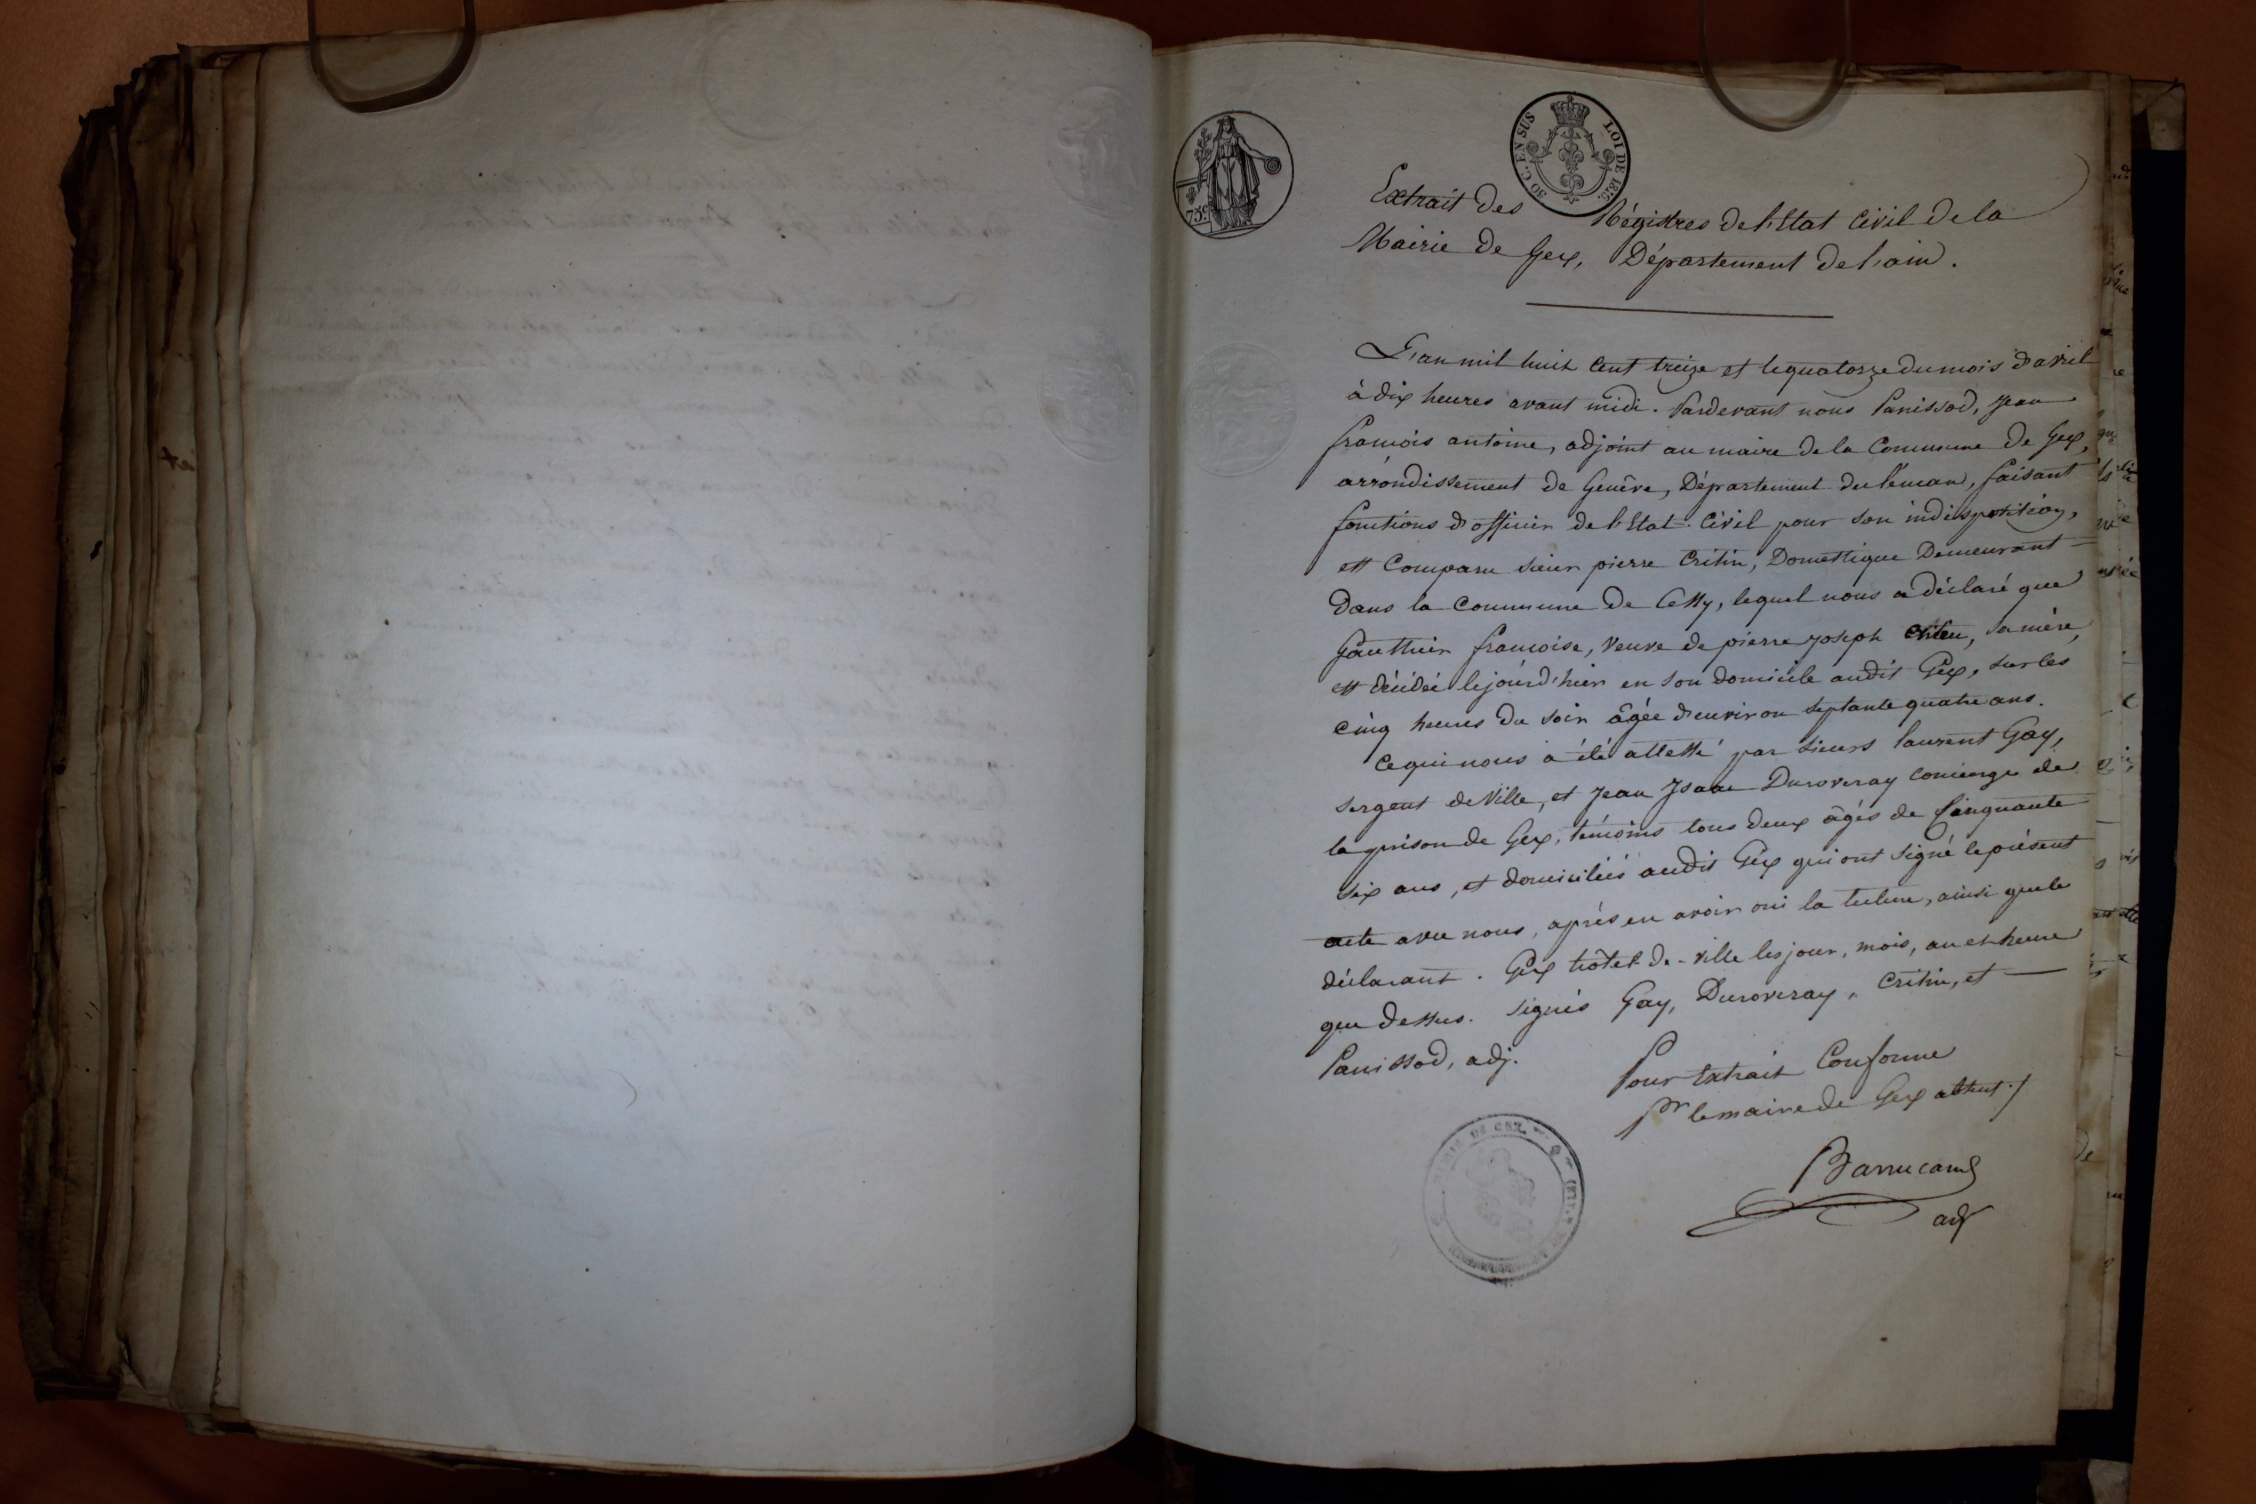 30 C. EN SUS
LOI DE 1816.
75 c.
Extrait des Régistres de l'Etat Civil de la
Mairie de Gex, Département de l'ain.
L'an mil huit Cent treize et le quatorze du mois d'avril
à dix heures avant midi. Pardevant nous Panissod, Jean
françois antoine, adjoint au maire de la Commune de Gex,
arrondissement de Genêve, Département du léman, faisant
fonctions d'officier de l'Etat-Civil pour son indisposition,
est Comparu sieur pierre Critin, Domestique Demeurant
dans la Commune de Cessy, lequel nous a déclaré que
Gautthier françoise, veuve de pierre joseph Critin, sa mère,
est décédée le jour d'hier en son domicile audit Gex, sur les
cinq heures du soir âgée d'environ septante quatre ans.
Ce qui nous a été attesté par sieurs laurent Gay,
sergent de Ville, et Jean Isaac Duroveray concierge de
la prison de Gex, témoins tous deux âgés de Cinquante
six ans, et domiciliés audit Gex qui ont signé le présent
acte avec nous, après en avoir oui la lecture, ainsi que le
déclarant. Gex hôtel-de-ville les jour, mois, an et heure
que dessus. Signés Gay, Duroveray, Critin, et
Panissod, adj.
Pour Extrait Conforme
Pr le maire de Gex absent
MAIRIE DE GEX
adj